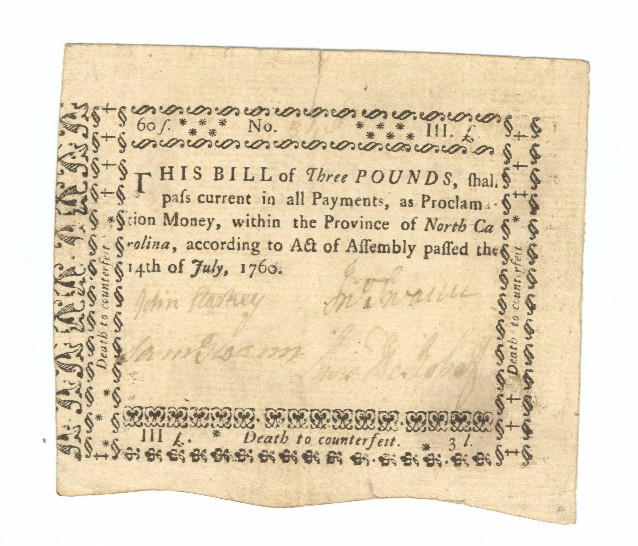 60ſ. No. III. £.
THIS BILL of Three POUNDS, ſhall
paſs current in all Payments, as Proclama-
tion Money, within the Province of North Ca
rolina, according to Act of Aſſembly paſſed the
14th of July, 1760.
John Starkey Jno Swann
Sam Swann
III £. Death to counterfeit. 3 l.
Death to counterfeit
Death to counterfeit